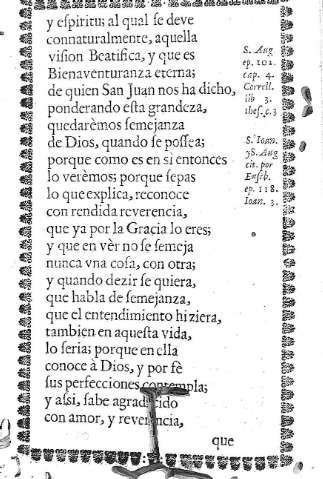 y eſpiritu; al qual ſe deve
connaturalmente, aquella
viſion Beatifica, y que es
Bienaventuranza eterna;
de quien San Juan nos ha dicho,
ponderando eſta grandeza,
quedarèmos ſemejanza
de Dios, quando ſe poſſea;
porque como es en si entonces
lo verèmos; porque ſepas
lo que explica, reconoce
con rendida reverencia,
que ya por la Gracia lo eres;
y que en vèr no ſe ſemeja
nunca vna coſa, con otra;
y quando dezir ſe quiera,
que habla de ſemejanza,
que el entendimiento hiziera,
tambien en aqueſta vida,
lo ſeria; porque en ella
conoce à Dios, y por fè
ſus perfecciones contempla;
y aſsi, ſabe agradecido
con amor, y reverencia,
que
S. Aug
ep. 102.
cap. 4.
lib 3.
S. Ioan.
yS. Aug
cit. por
ep. 118.
Ioan. 3.